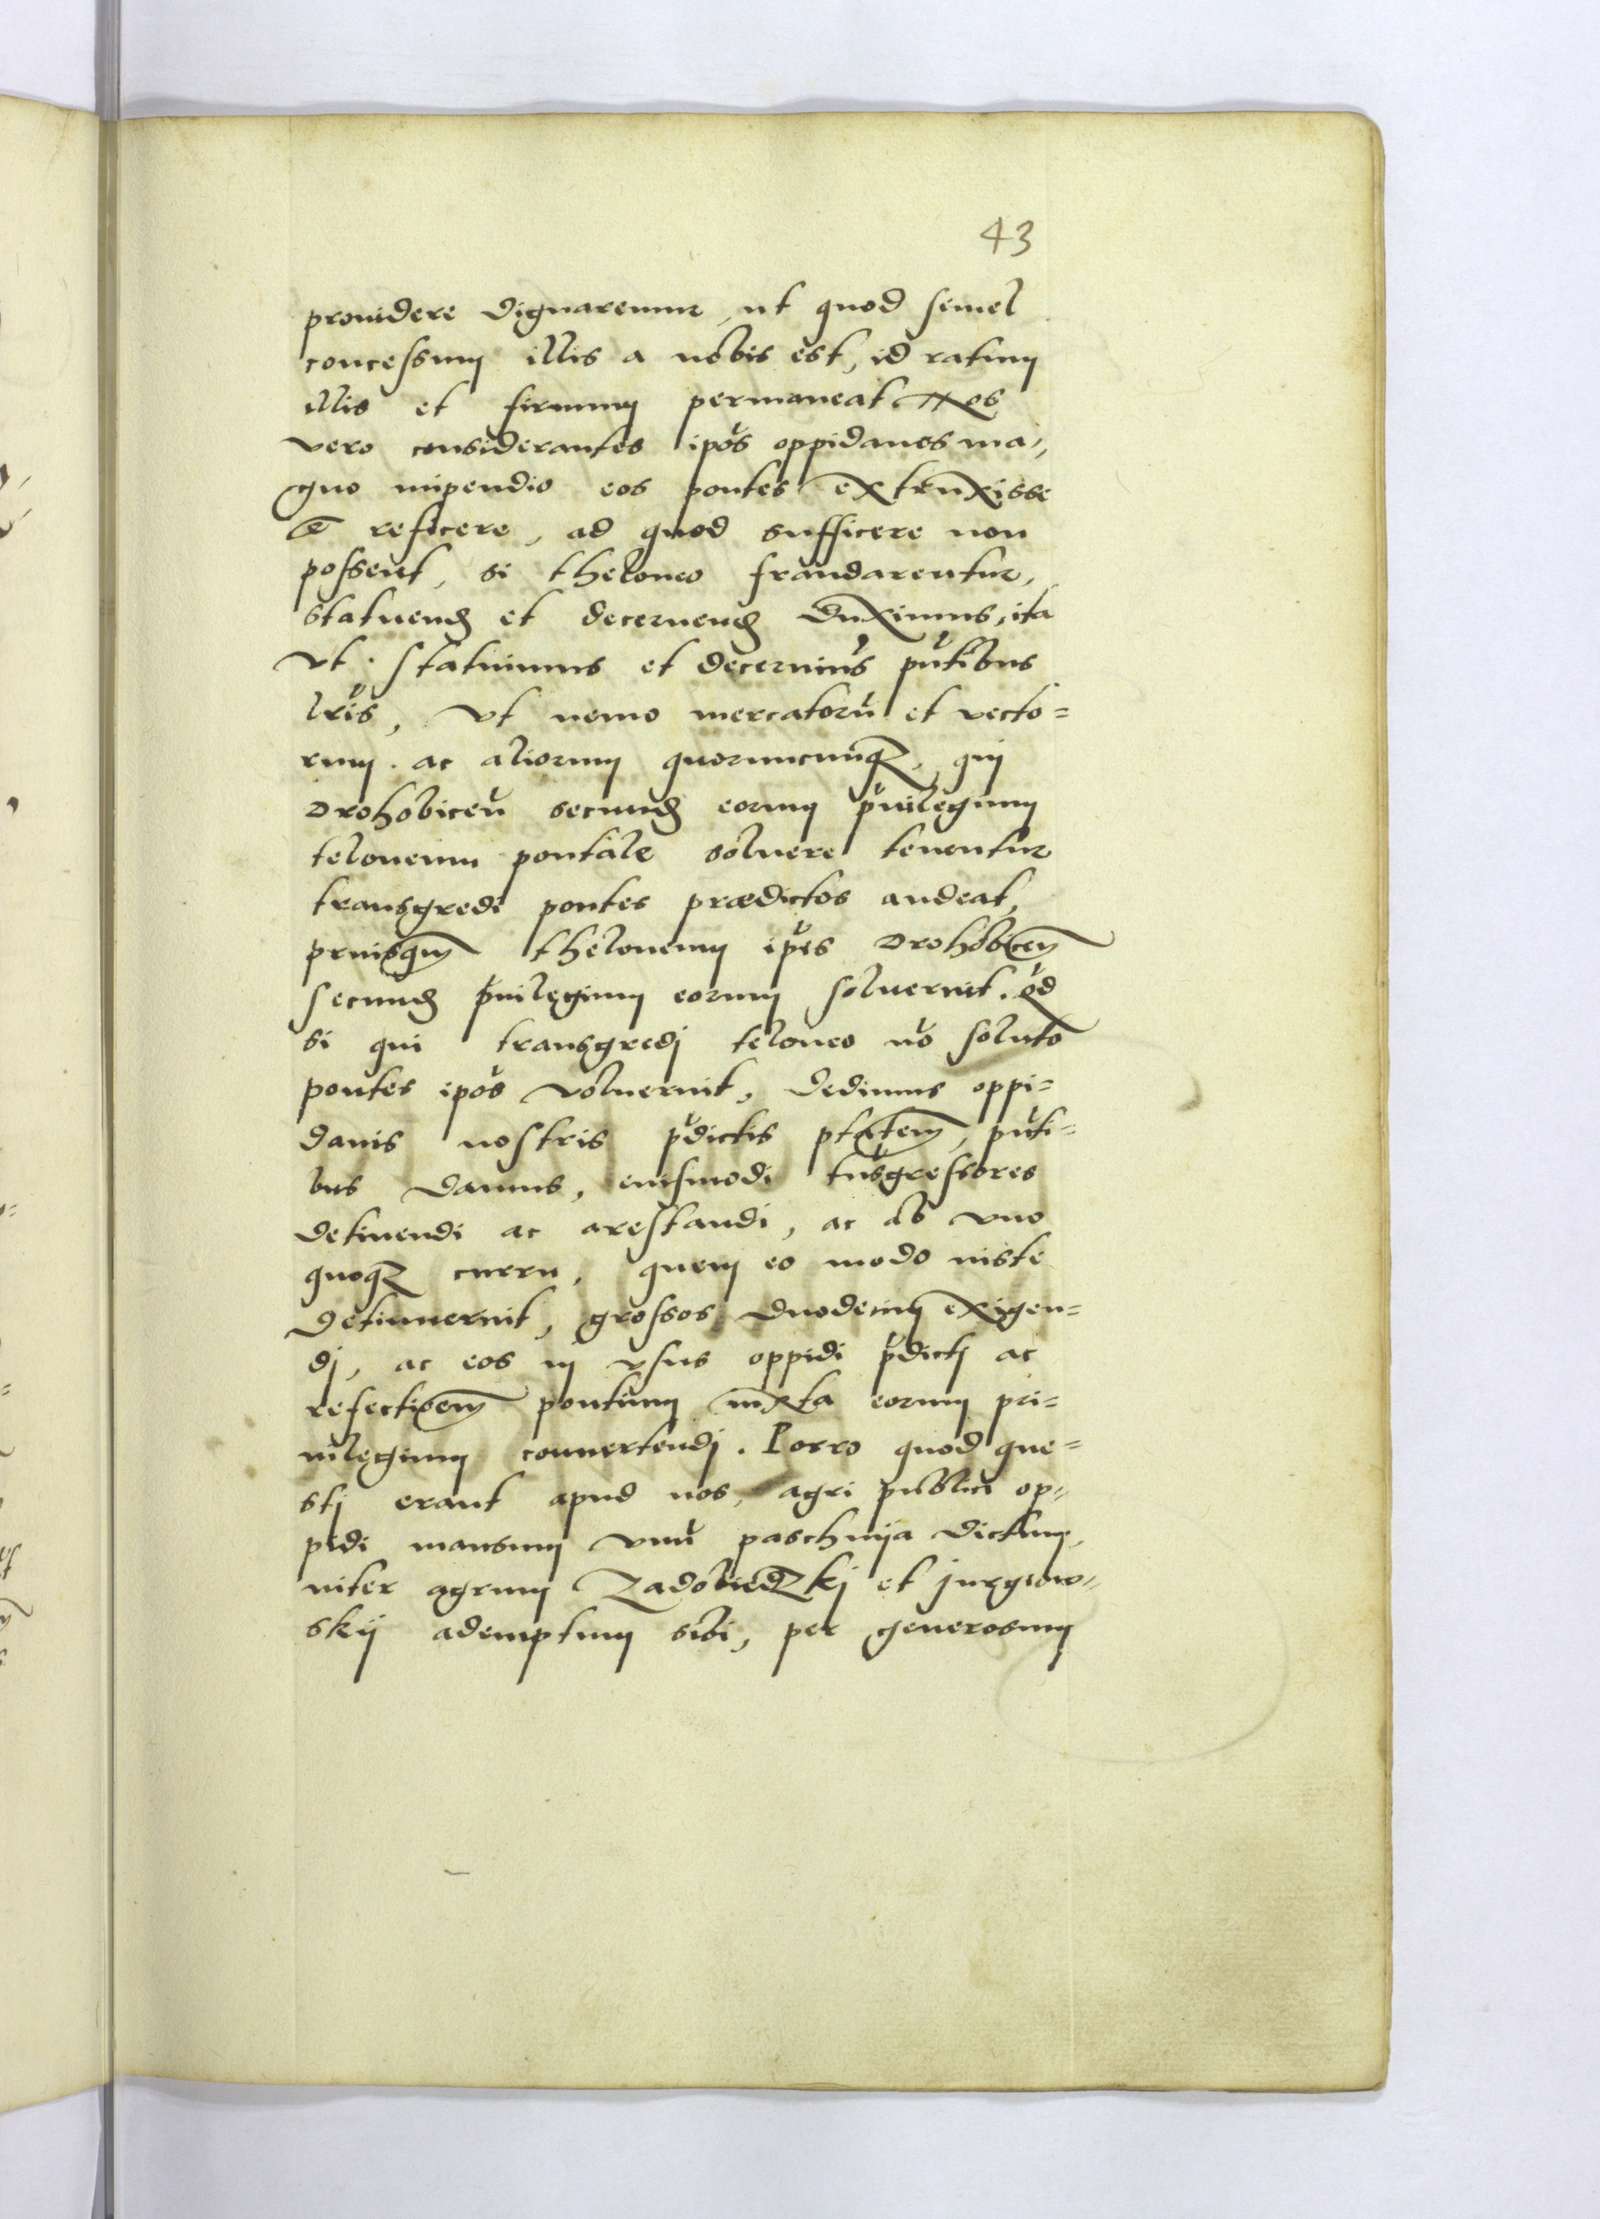 43
prouidere dignaremur, ut quod semel
concessum illis a nobis est, id ratum
illis et firmum permaneat Nos
vero considerantes ip̃os oppidanos ma,,
gno impendio eos pontes extruxisse
reficere, ad quod sufficere non
possent, si theloneo fraudarentur,
statuend et decernend duximus, ita
vt statuimus et decernim̃s pñtibus
lr̃is, vt nemo mercatorũ et vecto=
rum. ac aliorum quorumcunq3, qui
Drohobiceñ secund eorum p̃uilegium
teloneum pontale soluere tenentur
transgredi pontes prædictos audeat,
priusqm̃ theloneum ip̃is Drohobicen̄
secund p̃uilegium eorum soluerint. q̃d
si qui transgredj teloneo nõ soluto
pontes ip̃os voluerint, dedimus oppi=
danis nostris p̃dictis ptãtem, pñti=
bus damus, eiusmodi tñsgressores
detinendi ac arestandi, ac ab vno
quoq3 curru, quem eo modo iuste
detinuerint, grossos duodecim exigen=
dj, ac eos in vsus oppidi p̃dictj ac
refectioem̄ pontium iuxta eorum pri=
uilegium conuertendj. Porro quod que=
stj erant apud nos, agri publici op=
pidi mansum vnũ paschnija dictum,
inter agrum Zadobiedzkj et jurgiow=
skij ademptum sibi, per generosum